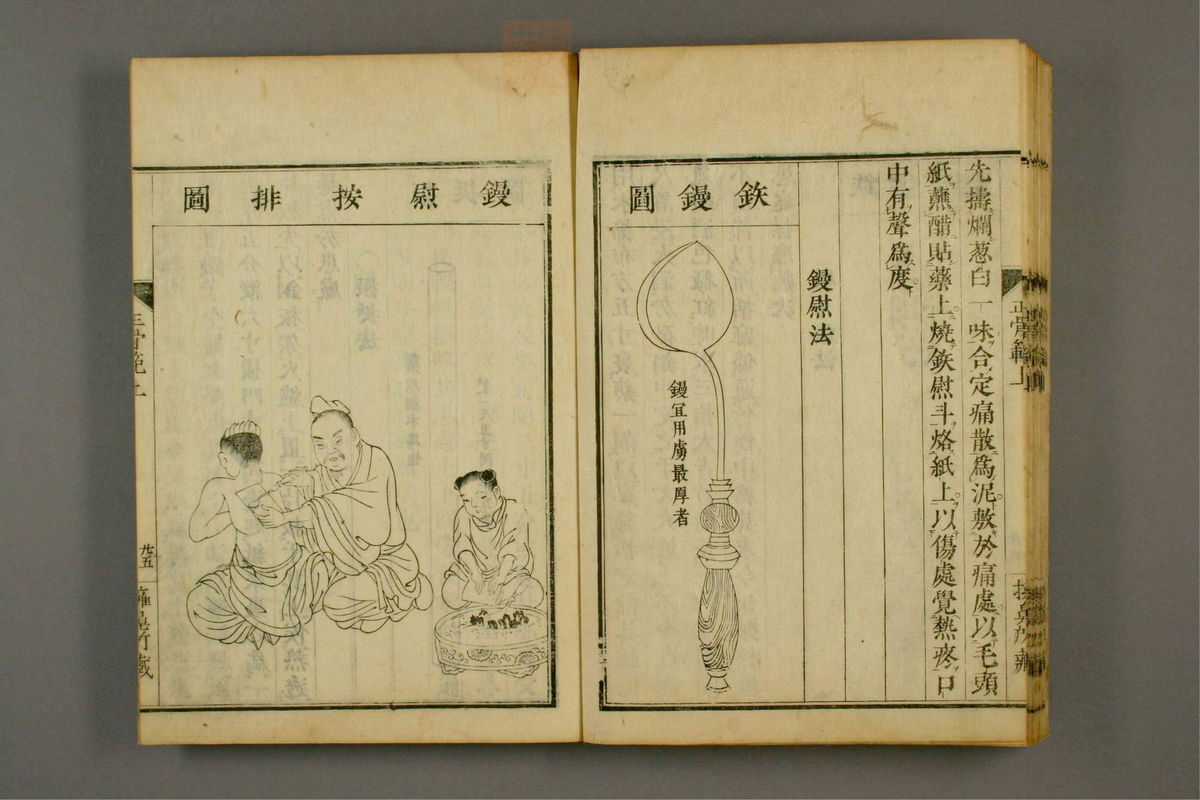 先擣爛葱白一味合定痛散爲泥敷於痛處以毛頭
紙蘸醋貼藥上燒鉄慰斗烙紙上以傷處覺熱疼口
中有聲爲度
鏝慰法
鉄鏝圖
鏝宜用虜最厚者
正骨範上
鏝慰按排圖
正骨範上
廿五